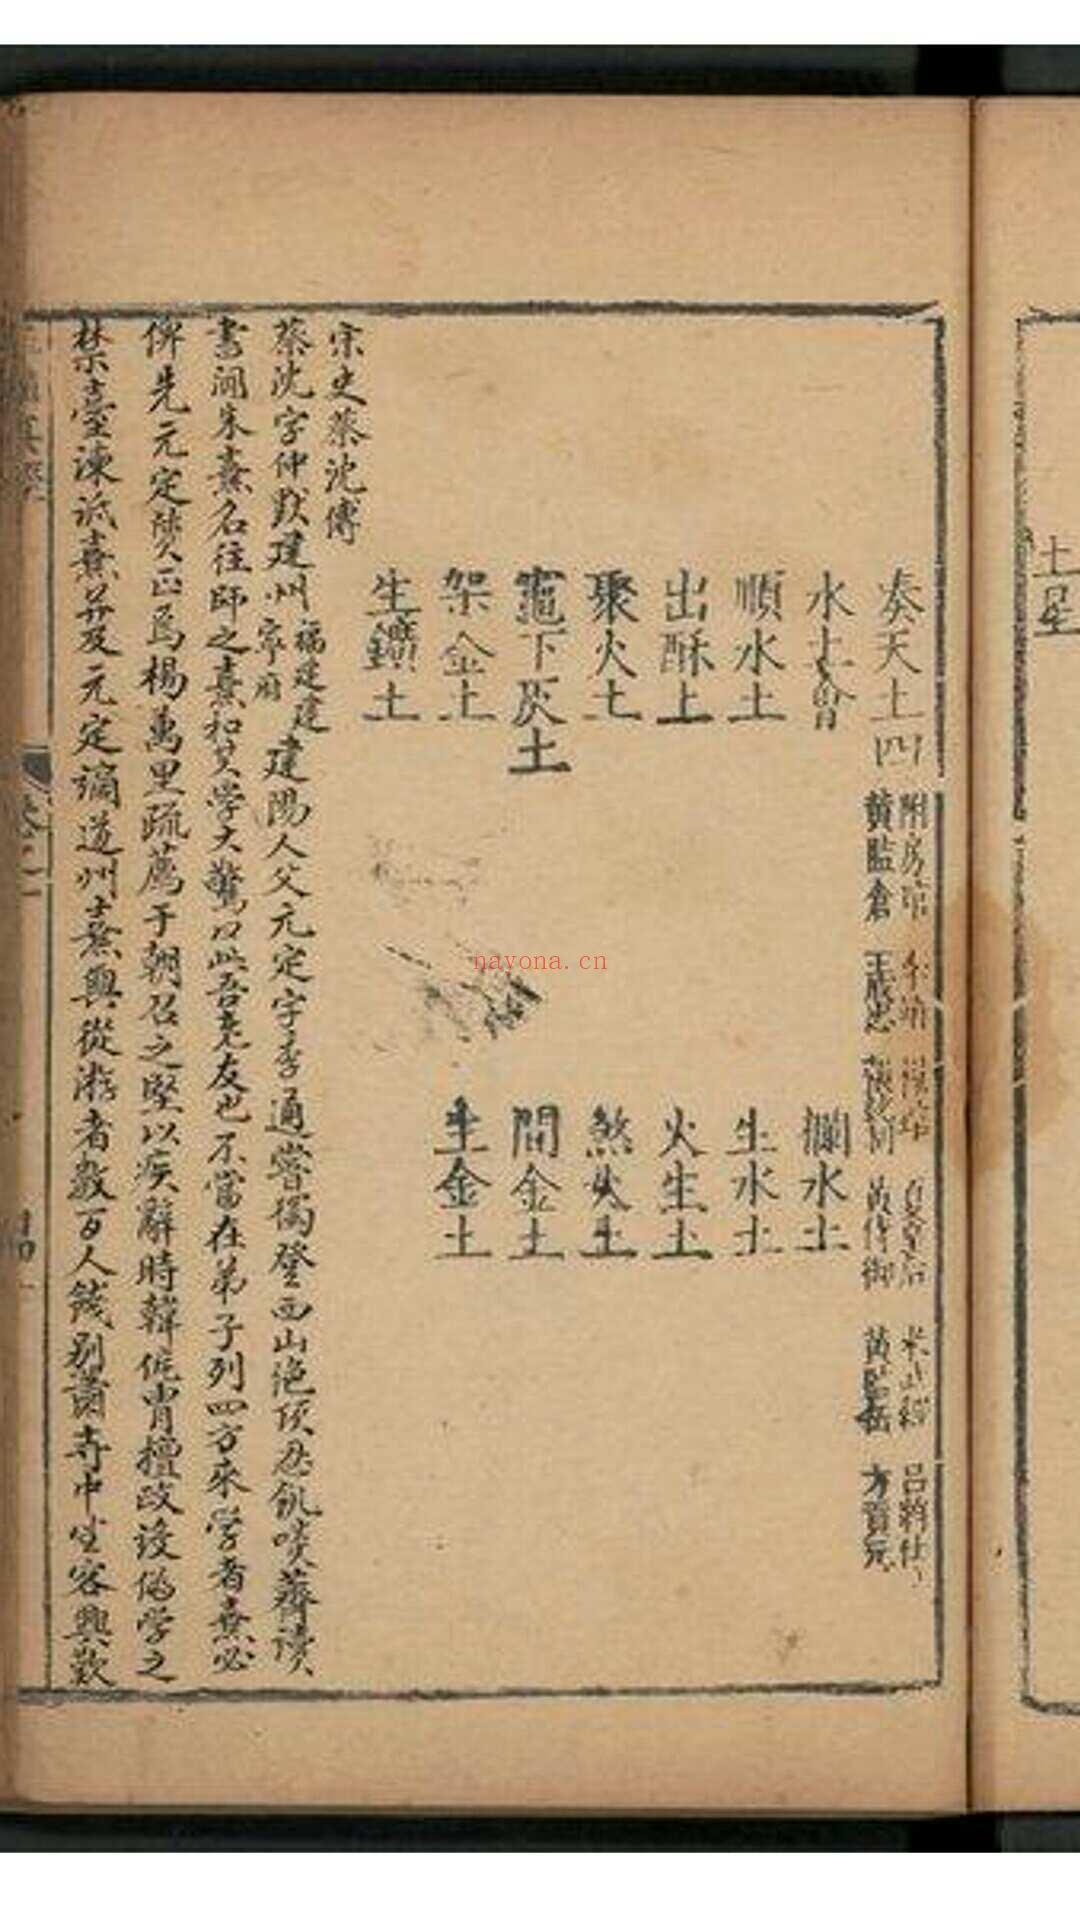 土星
奏天土四
附房 李 夏皇后 米 呂將仕
黃監倉 王 黃侍御 黃監 方
水土
攔水土
順水土
生水土
出酥土
火生土
聚火土
煞火土
竈下灰土
間金土
架金土
生金土
生鑛土
宋史蔡沈傳
蔡沈字仲默建州福建建寧府建陽人父元定字季通嘗獨登西山絶頂忍飢啖薺讀
書聞朱熹名往師之熹和其學大驚曰此吾老友也不當在弟子列四方來學者熹必
俾先元定質正焉楊萬里疏薦于朝召之堅以疾辭時韓侂胄擅政設僞學之
禁臺諫詆熹并及元定謫道州熹與從游者數百人餞别蕭寺中坐客興歎
nayona.cn